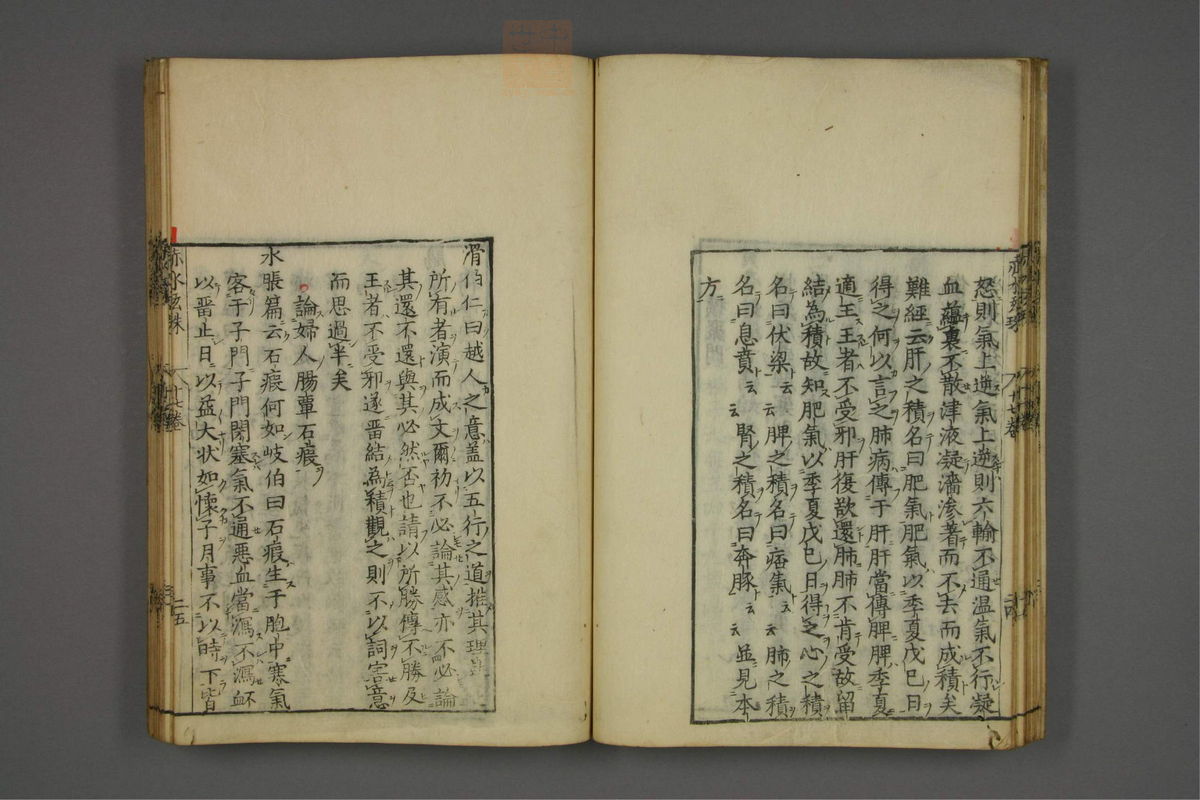 怒則氣上逆氣上逆則六輸不通温氣不行凝
血蘊裏不散津液凝濇渗著而不去而成積矣
難經云肝之積名曰肥氣肥氣以季夏戊巳日
得之何以言之肺病傳于肝肝當傳脾脾季夏
適王王者不受邪肝復欲還肺肺不肯受故留
結為積故知肥氣以季夏戊巳日得之心之積
名曰伏梁云云脾之積名曰痞氣云云肺之積
名曰息賁云云腎之積名曰奔豚云云並見本
方
滑伯仁曰越人之意盖以五行之道推其理
所有者演而成文爾初不必論其感亦不必論
其還不還與其必然否也請以所勝傳不勝及
王者不受邪遂畱結為積觀之則不以詞害意
而思過半矣
論婦人腸覃石瘕
水脹篇云石瘕何如岐伯曰石瘕生于胞中寒氣
客于子門子門閉塞氣不通惡血當瀉不瀉衃
以畱止日以益大狀如懷子月事不以時下皆
赤水玄珠 十七卷 二五